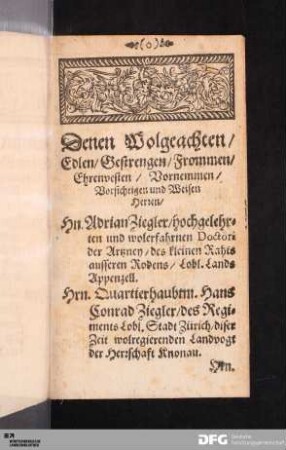 (o)
Denen Wolgeachten/
Edlen/Gestrengen/Frommen/
Ehrenvesten/ Vornemmen/
Vorsichtigen und Weisen
Herren/
Hn. Adrian Ziegler/hochgelehr-
ten und wolerfahrnen Doctori
der Artzney/ des kleinen Rahts
ausseren Rodens/ Lobl. Lands
Appenzell.
Hrn. Quartierhaubtm. Hans
Conrad Ziegler/des Regi-
ments Lobl. Stadt Zürich/diser
Zeit wolregierenden Landvogt
der Herrschaft Knonau.
Hn.
DFG
Deutsche
Forschungsgemeinschaft